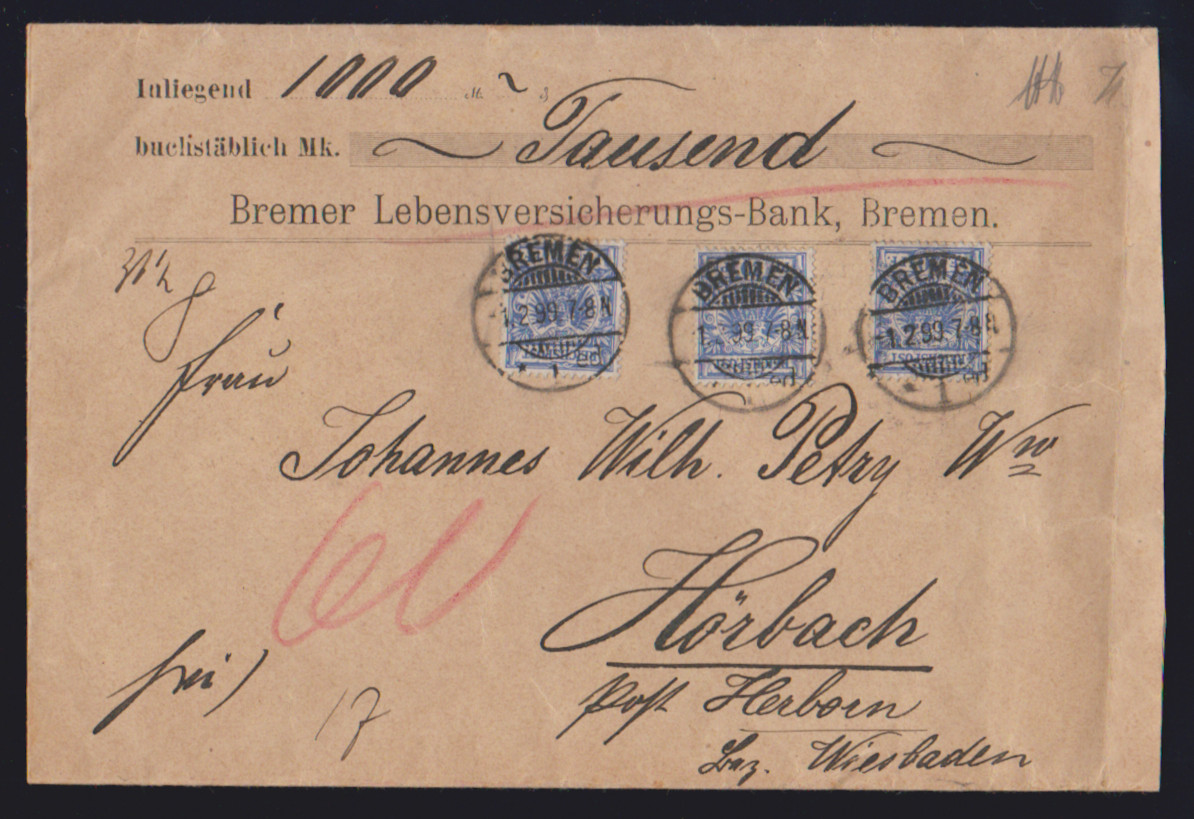 Inliegend 1000 M. ~ ₰
buchstäblich Mk. Tausend
Bremer Lebensversicherungs-Bank, Bremen.
BREMEN
1.2.99.7-8N.
1
BREMEN
1. .99.7-8N.
BREMEN
1.2.99.7-8N.
1
Frau
Johannes Wilh. Petry Ww
60
Hörbach
frei)
Post Herborn
17
Bez. Wiesbaden